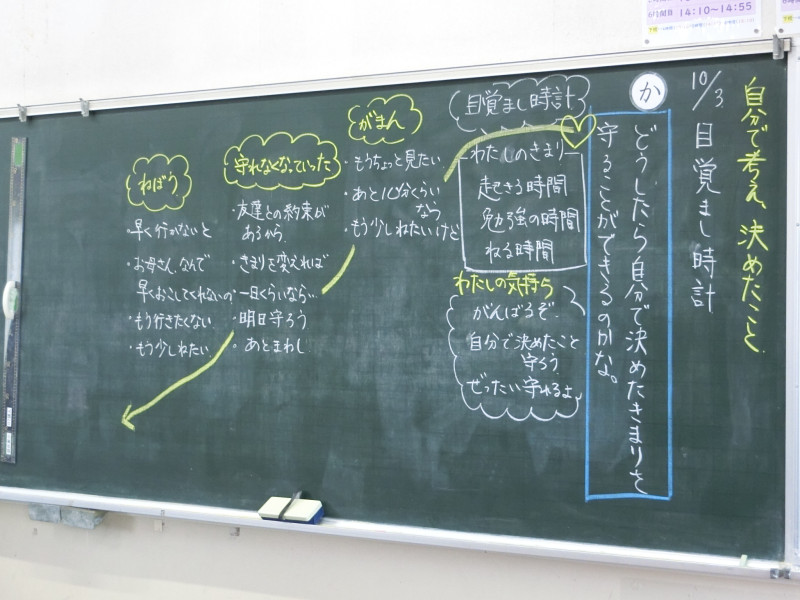 14:10～14:55
自分で考え、決めたこと
10/3 目覚まし時計
か
どうしたら自分で決めたきまりを
守ることができるのかな。
目覚まし時計
わたしのきまり
起きる時間
勉強の時間
ねる時間
わたしの気持ち
がんばるぞ.
自分で決めたこと
守ろう
ぜったい守れるよ
がまん
・もうちょっと見たい
・あと10分くらい
なら
・もう少しねたいけど
守れなくなっていった
・友達との約束が
あるから.
・きまりを変えれば
・一日くらいなら…
・明日守ろう
・あとまわし
ねぼう
・早く行かないと
・お母さん、なんで
早くおこしてくれないの
・もう行きたくない
・もう少しねたい